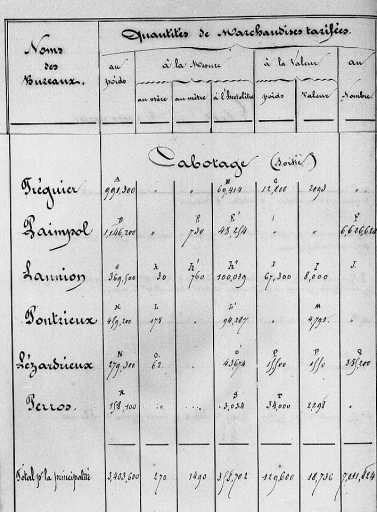 Noms des Bureaux. Quantités de Marchandises tarifées.
au poids à la Mesure à la Valeur au Nombre
au stère au mètre à l'hectolitre poids Valeur
Cabotage (Sortie)
A B C
Tréguier 991,300 " " 69,414 12,800 2093 "
Paimpol 1,146,200 " 730 43,254 6,626,624
Lannion 369,500 30 760 100,039 67,300 8,000
Pontrieux 459,200 178 94,287 4,795
Lézardrieux 279,300 62 43674 1500 1550 385,200
Perros. 158,100 3,034 34,000 2,298
Total pr la principalité 3,403,600 270 1490 353,702 129,600 18,736 7,011,824